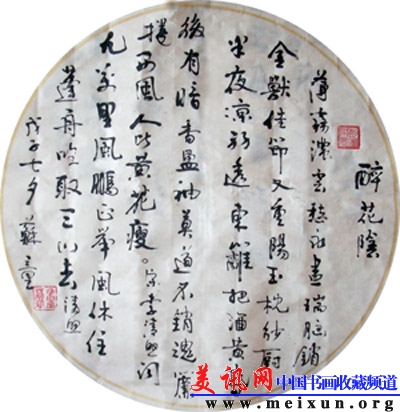 醉花陰
薄霧濃雲愁永晝瑞腦銷
金獸佳節又重陽玉枕紗厨
半夜涼初透東籬把酒黄昏
後有暗香盈袖莫道不銷魂簾
捲西風人比黄花瘦。宋李清照词
九萬里風鵬正举風休住
蓬舟吹取三山去清照
戊子七夕蘇
美讯网 中国书画收藏频道
www.meixun.org